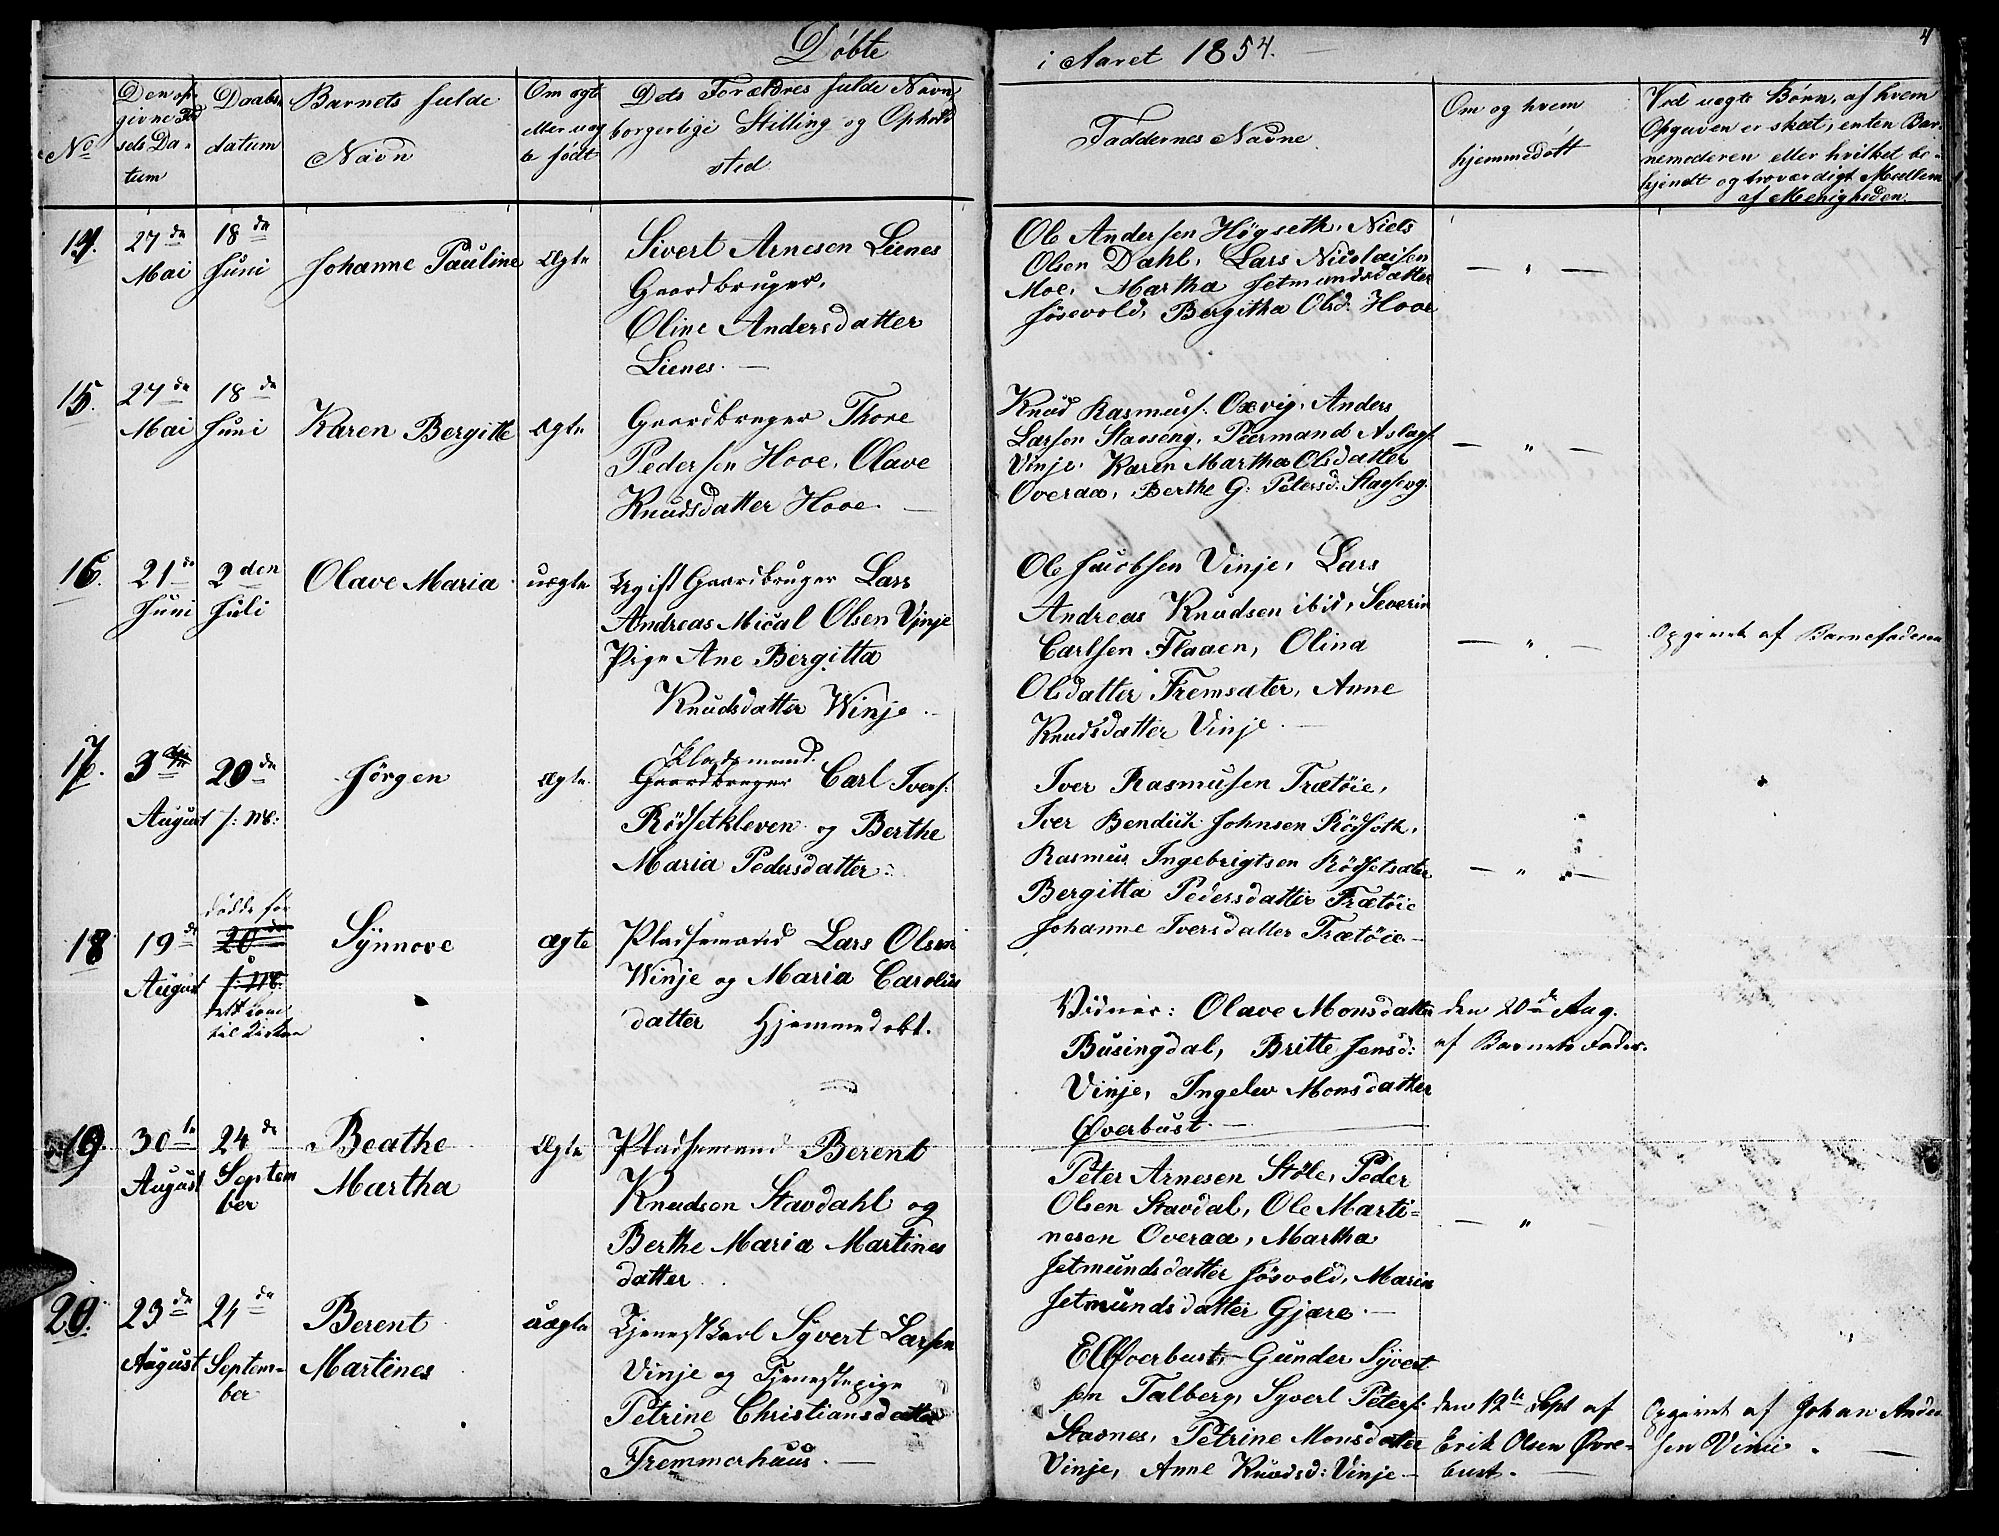 Döbte
i Aaret 1854.
4
No
Den op-
givne Fød
sels Da-
tum
Daabs-
datum
Barnets fulde
Navn
Om ægte
eller uæg
te født
Dets Forældres fulde Navn,
borgerlige Stilling og Opholds
sted.
Faddernes Navne
Om og hvem
hjemmedøbt
Ved uægte Børn, af hvem
Opgaven er skeet, enten Bar-
nemoderen eller hvilket be-
kjendt og troværdigt Medlem
af Menigheden.
14.
27de
Mai
18de
Juni
Johanne Pauline
Ægte
Sivert Arnesen Lienes
Gaardbruger,
Oline Andersdatter
Lienes. —
Ole Andersen Högseth, Niels
Olsen Dahl, Lars Nicolaisen
Moe, Martha Jetmundsdatter
Jösevold, Bergitha Olsd: Hove
— " —
15.
27de
Mai
18de
Juni
Karen Bergitte
Ægte
Gaardbruger Thore
Pedersen Hove, Olave
Knudsdatter Hove. —
Knud Rasmuss: Oxvig, Anders
Larsen Staaseng, Peermand Aslags
Vinje, Karen Martha Olsdatter
Overaa, Berthe G: Petersd:
— " —
16.
21de
Juni
2den
Juli
Olave Maria
uægte
Ugift Gaardbruger Lars
Andreas Mical Olsen Vinje
Pige Ane Bergitta
Knudsdatter Winje. —
Ole Jacobsen Vinje, Lars
Andreas Knudsen ibid, Severin
Carlsen Flaaen, Olina
Olsdatter Fremsæter, Anne
Knudsdatter Vinje. —
— " —
Opgivet af Barnefaderen
17.
3die
August
20de
s: M:
Jörgen
Ægte
Pladsmand.
Gaardbruger Carl Ivers:
Rödsetkleven og Berthe
Maria Pedersdatter.
Iver Rasmusen Trætöie,
Iver Bendick Johnsen Rödseth,
Rasmus Ingebrigtsen Rödsetsæter
Bergitta Pedersdatter Trætöie
Johanne Iversdatter Trætöie —
— " —
18
19de
August
døde før
20de
s: M:
til Kirken
Synnove
ægte
Pladsemand Lars Olsen
Winje og Maria Carolus
datter Hjemmedøbt.
Vidner: Olave Monsdatter
Busingdal, Britte Jensd:
Vinje, Ingelev Monsdatter
Øverbust. —
den 20de Aug.
af Barnets Fader.
19.
30te
August
24de
Septem
ber
Beathe
Martha
Ægte
Pladsemand Berent
Knudsen Stavdahl og
Berthe Maria Martines
datter
Peter Arnesen Støle, Peder
Olsen Stavdal, Ole Marti-
nesen Overaa, Martha
Jetmundsdatter Jösvold, Marin
Jetmundsdatter Gjære. —
— " —
20.
23de
August
24de
Septem-
ber
Berent
Martines
uægte
Tjenestkarl Syvert Larsen
Vinje og Tjenestepige
Petrine Christiansdatter
Fremmerhuus. —
Øverbust, — Gunder Syvert
sen Talberg, Syvert Peters:
Stavnes, Petrine Monsdatter
Vinje, Anne Knudsd: Vinje —
den 12te Sept af
Erik Olsen Øvre-
bust. —
Opgivet af Johan Ander
sen Vinie. —